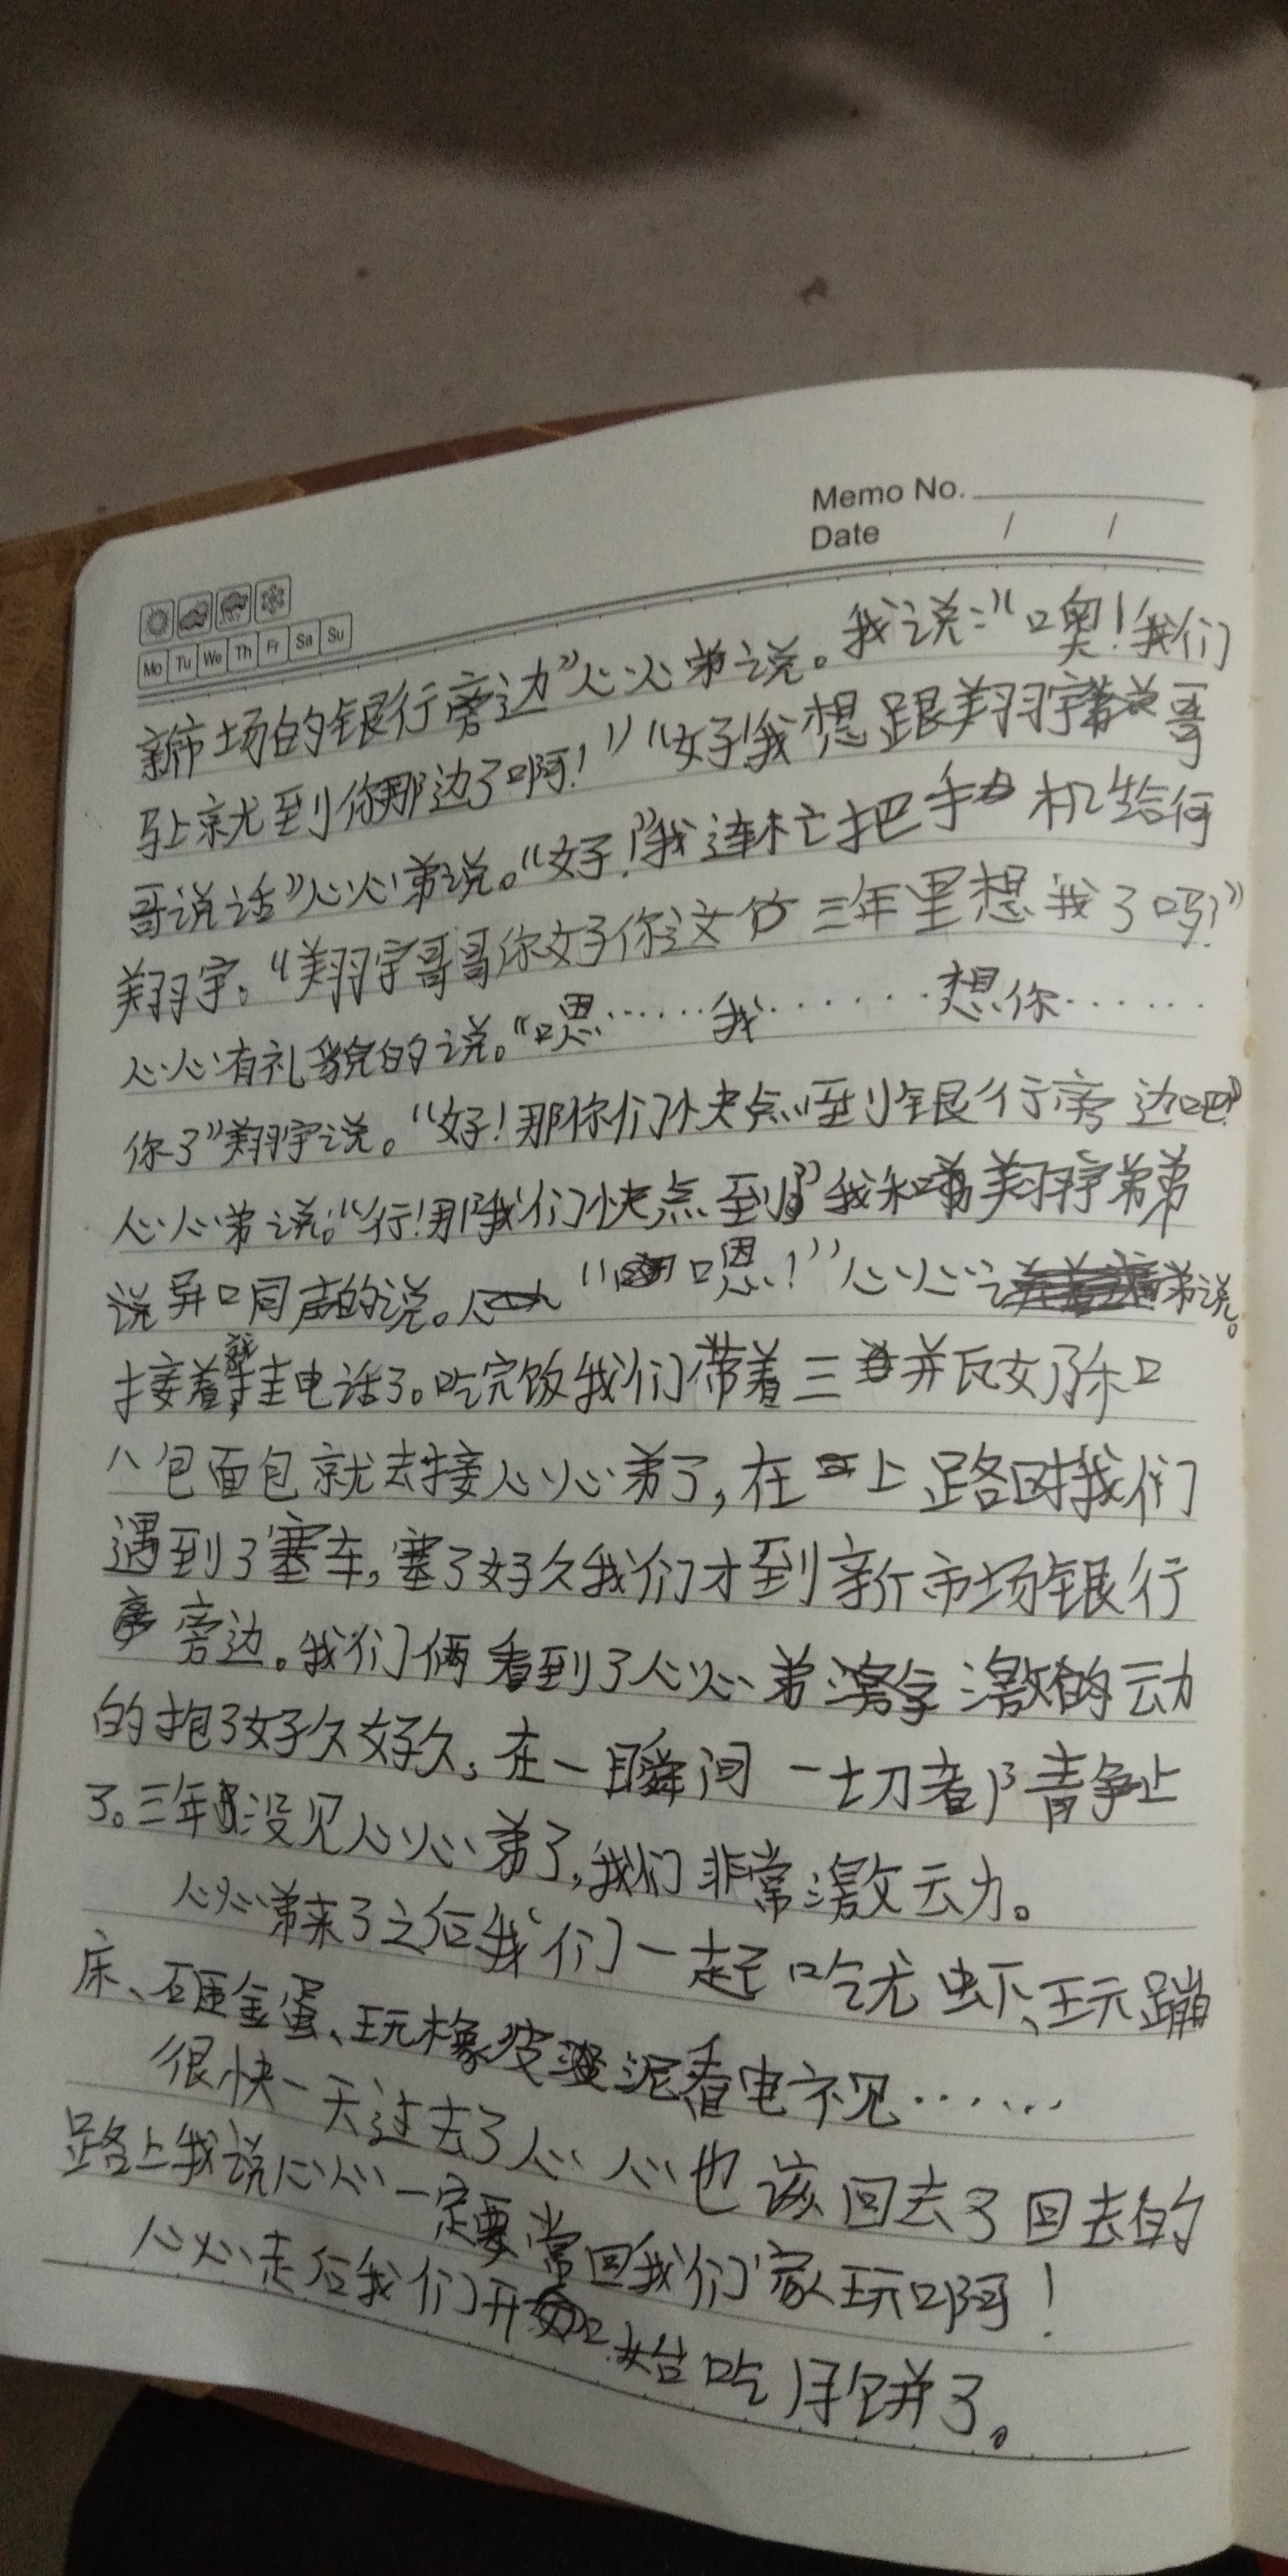 Memo No.
Date / /
Mo Tu We Th Fr Sa Su
新市场的银行旁边”心心弟说。我说:“噢!我们
马上就到你那边了啊!”“好!我想跟翔宇哥
哥说话”心心弟说。“好!”我连忙把手机给何
翔宇。“翔宇哥哥你好你这三年里想我了吗?”
心心有礼貌的说。“嗯……我……想你……
你了”翔宇说。“好!那你们快点到银行旁边吧”
心心弟说。“行!那我们快点到”我和翔宇弟弟
说异口同声的说。“嗯!”心心弟说。
接着就挂电话了。吃完饭我们带着三并瓦女乃和
八包面包就去接心心弟了,在上路时我们
遇到了塞车,塞了好久我们才到新市场银行
旁边。我们俩看到了心心弟激动
的抱了好久好久,在一瞬间一切都静止
了。三年没见心心弟了,我们非常激动。
心心弟来了之后我们一起吃龙虾、玩蹦
床、砸金蛋、玩橡皮泥看电视……
很快一天过去了心心也该回去了回去的
路上我说心心一定要常回我们家玩啊!
心心走后我们开始吃月饼了。